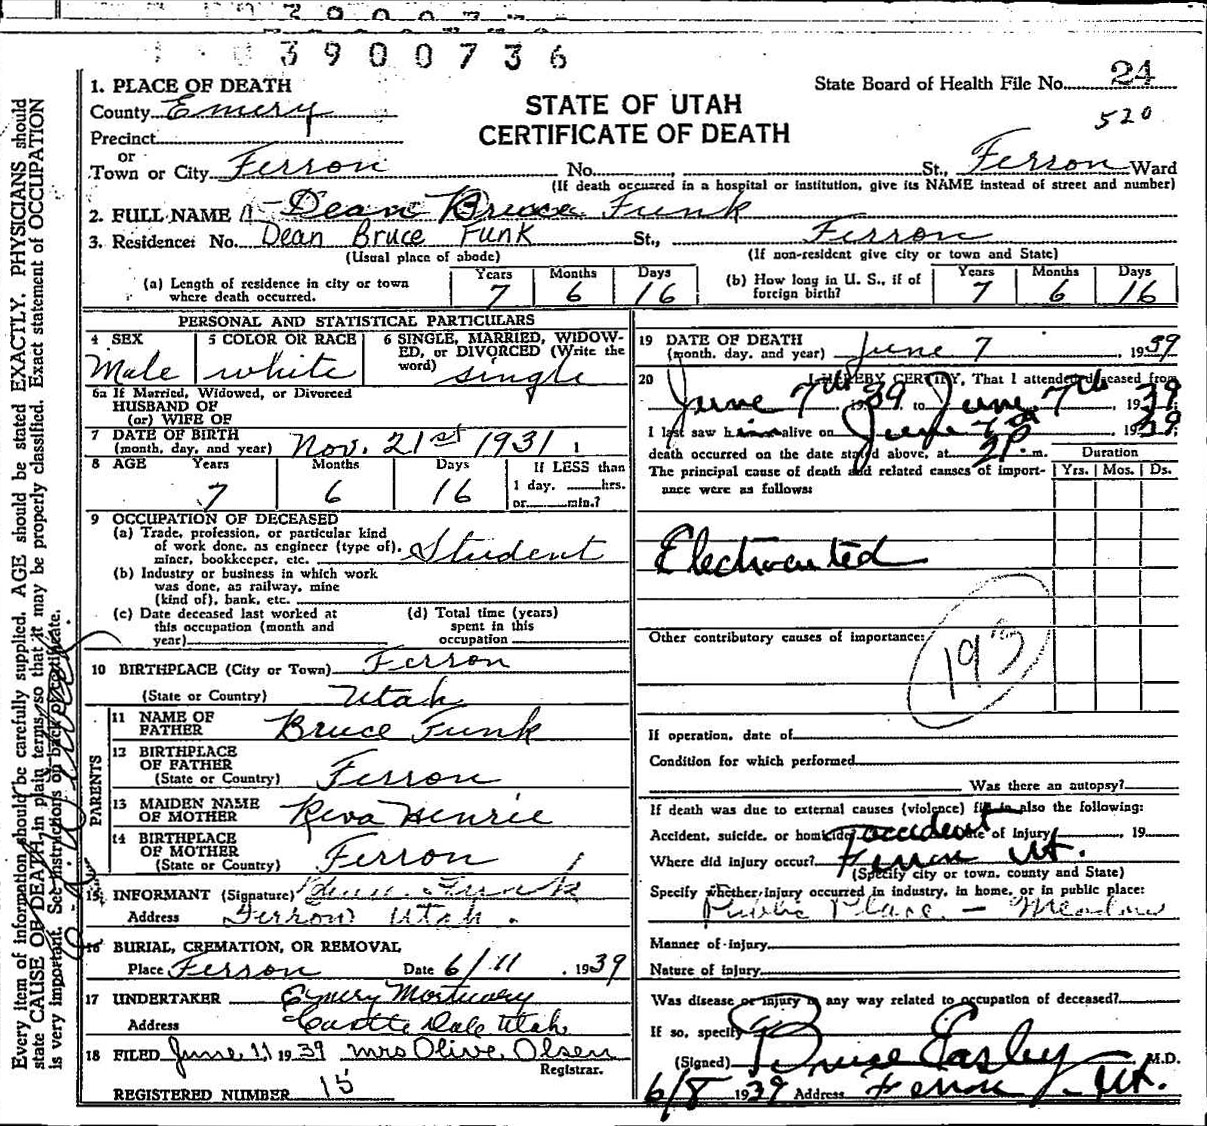 3900736
State Board of Health File No. 24
520
STATE OF UTAH
CERTIFICATE OF DEATH
1. PLACE OF DEATH
County Emery
Precinct
or
Town or City Ferron No. , St., Ferron Ward
(If death occurred in a hospital or institution, give its NAME instead of street and number)
2. FULL NAME Dean Bruce Funk
3. Residence: No. Dean Bruce Funk St., Ferron
(Usual place of abode) (If non-resident give city or town and State)
(a) Length of residence in city or town where death occurred. Years 7 Months 6 Days 16
(b) How long in U. S., if of foreign birth? Years 7 Months 6 Days 16
PERSONAL AND STATISTICAL PARTICULARS
4 SEX Male
5 COLOR OR RACE white
6 SINGLE, MARRIED, WIDOWED, or DIVORCED (Write the word) single
6a If Married, Widowed, or Divorced
HUSBAND OF
(or) WIFE OF
7 DATE OF BIRTH
(month, day, and year) Nov. 21st 1931 1
8 AGE Years 7 Months 6 Days 16
If LESS than
1 day, hrs.
or min.?
9 OCCUPATION OF DECEASED
(a) Trade, profession, or particular kind
of work done, as engineer (type of),
miner, bookkeeper, etc. Student
(b) Industry or business in which work
was done, as railway, mine
(kind of), bank, etc.
(c) Date deceased last worked at
this occupation (month and
year)
(d) Total time (years)
spent in this
occupation
10 BIRTHPLACE (City or Town) Ferron
(State or Country) Utah
PARENTS
11 NAME OF
FATHER Bruce Funk
12 BIRTHPLACE
OF FATHER
(State or Country) Ferron
13 MAIDEN NAME
OF MOTHER Reva Henrie
14 BIRTHPLACE
OF MOTHER
(State or Country) Ferron
15 INFORMANT (Signature) Funk
Address Ferron Utah.
16 BURIAL, CREMATION, OR REMOVAL
Place Ferron Date 6/11, 1939
17 UNDERTAKER Emery Mortuary
Address Castle Dale Utah
18 FILED June 11 1939 Mrs Olive Olsen
Registrar.
REGISTERED NUMBER 15
19 DATE OF DEATH
(month, day, and year) June 7, 1939
20 I HEREBY CERTIFY, That I attended deceased from
June 7th 1939 to June 7th 1939
I last saw him alive on June 7th 1939;
death occurred on the date stated above, at 2P. m.
Duration
The principal cause of death and related causes of importance were as follows:
Yrs. Mos. Ds.
Electrocuted
Other contributory causes of importance:
193
If operation, date of
Condition for which performed
Was there an autopsy?
If death was due to external causes (violence) fill in also the following:
Accident, suicide, or homicide accident Date of injury 19
Where did injury occur? Ferron Ut.
(Specify city or town, county and State)
Specify whether injury occurred in industry, in home, or in public place:
Public Place - Meadow
Manner of injury
Nature of injury
Was disease or injury in any way related to occupation of deceased?
If so, specify
(Signed) Bruce Easley M.D.
6/8 1939 Address Ferron Ut.
Every item of information should be carefully supplied. AGE should be stated EXACTLY. PHYSICIANS should
state CAUSE OF DEATH in plain terms, so that it may be properly classified. Exact statement of OCCUPATION
is very important. See instructions on back of certificate.